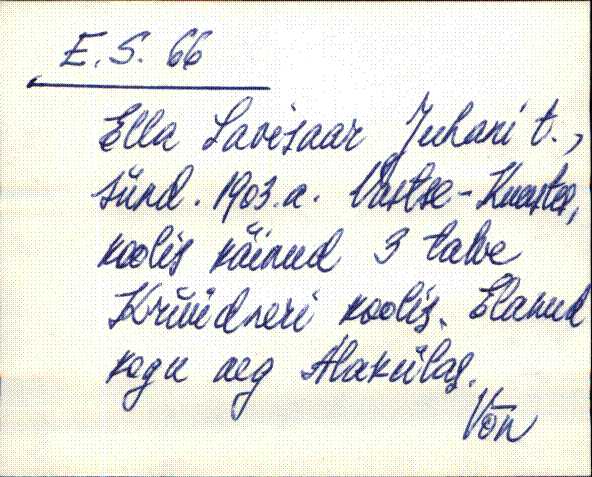 E. S. 66
Ella Savisaar Juhani t.,
sünd. 1903. a. Vastse-Kuustes,
koolis käinud 3 talve
Krüüdneri koolis. Elanud
kogu aeg Alakülas.
Võn